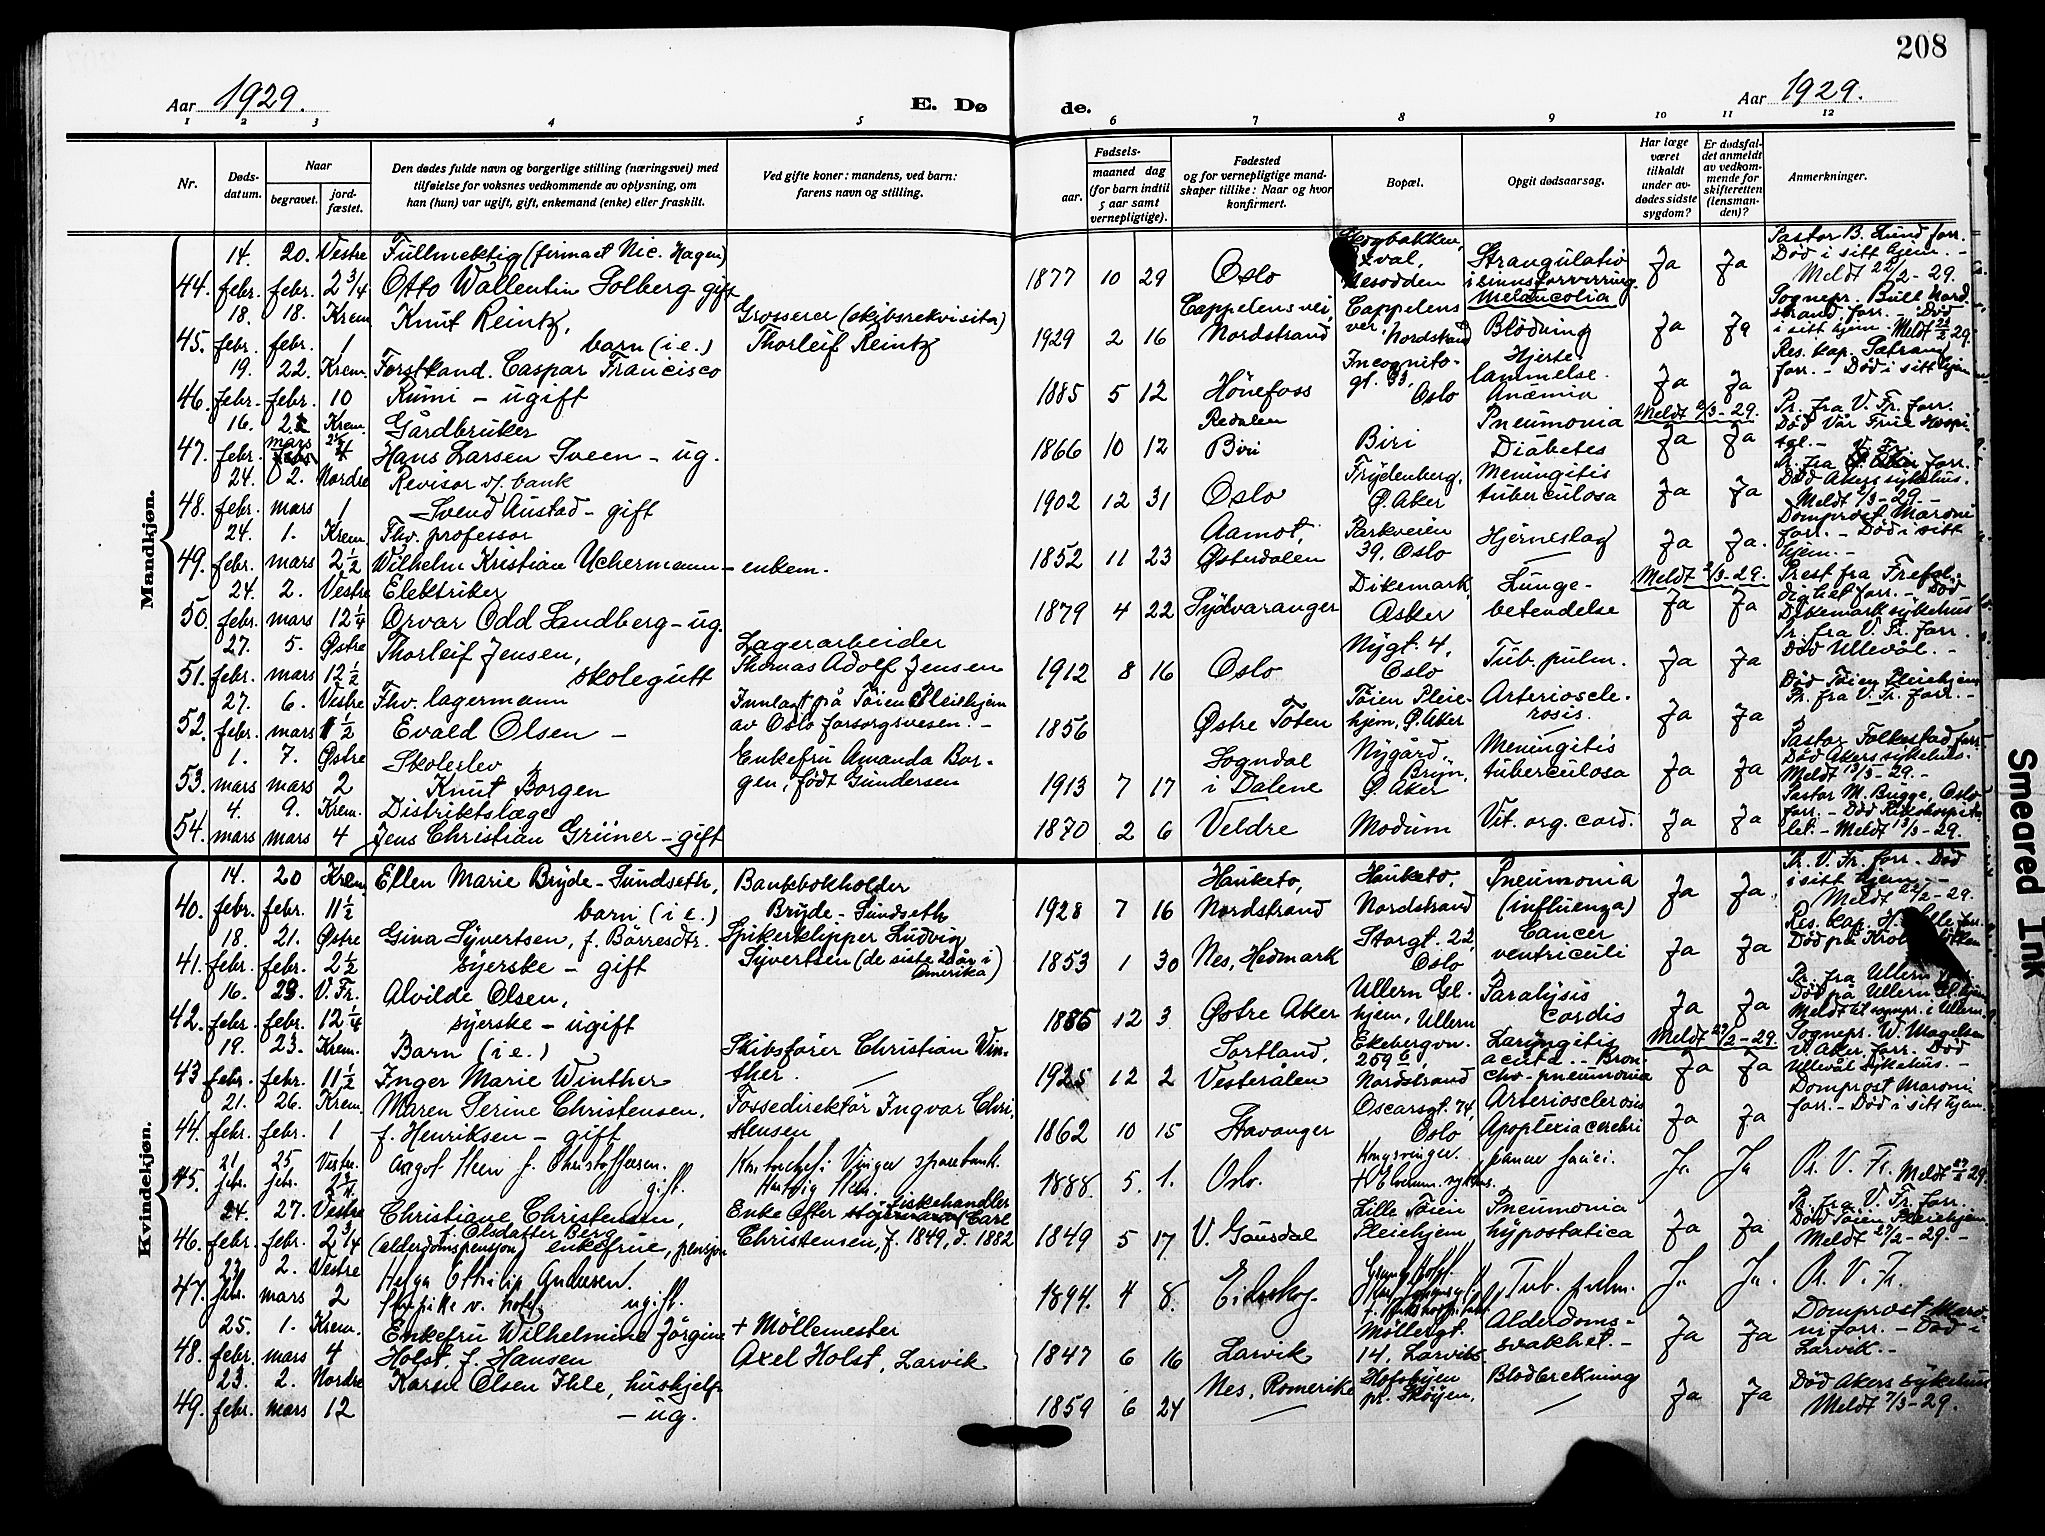 208
Aar 1929.
E. Døde.
Aar 1929.
1 2 3 4 5 6 7 8 9 10 11 12
Nr.
Døds-
datum.
Naar
begravet.
jord-
fæstet.
Den dødes fulde navn og borgerlige stilling (næringsvei) med
tilføielse for voksnes vedkommende av oplysning, om
han (hun) var ugift, gift, enkemand (enke) eller fraskilt.
Ved gifte koner: mandens, ved barn:
farens navn og stilling.
Fødsels-
aar.
maaned dag
(for barn indtil
5 aar samt
vernepligtige).
Fødested
og for vernepligtige mand-
skaper tillike: Naar og hvor
konfirmert.
Bopæl.
Opgit dødsaarsag.
Har læge
været
tilkaldt
under av-
dødes sidste
sygdom?
Er dødsfal-
det anmeldt
av vedkom-
mende for
skifteretten
(lensman-
den)?
Anmerkninger.
Mandkjøn.
14. 20. Vestre Fullmektig (firmaet Nic. Hagen)
44. febr. febr. 2 3/4 Otto Wallentin Solberg gift
1877 10 29 Oslo
Nesodden
Strangulatio
i sinnsforvirring
Melancolia
Ja Ja
Pastor B. Lund forr.
Død i sitt hjem. -
Meldt 22/2 - 29.
18. 18. Krem. Knut Reintz, Grosserer (skibsrekvisita)
45. febr. febr. 1 barn (i.e.) Thorleif Reintz
1929 2 16 Cappelens vei, Nordstrand
Cappelens vei, Nordstrand
Blödning
Ja Ja
Sognepr. Bull Nord-
strand forr. - Død
i sitt hjem. Meldt 22/2 29.
19. 22. Krem. Forstkand. Caspar Francisco
46. febr. febr. 10 Rumi - ugift
1885 5 12 Hönefoss
Incognito-
gt. 33, Oslo
Hjerte-
lammelse.
Anæmia
Ja Ja
Res. kap.
forr. - Død i sitt hjem
16. Krem. Gårdbruker
47. febr. mars Hans Larsen Sveen - ug.
1866 10 12 Redalen
Biri
Biri
Pneumonia
Diabetes
Ja Ja
Pr. fra V. Fr. forr.
Død Vår Frue Hospi-
tal. -
24. 2. Nordre Revisor v/ bank
48. febr. mars 1 Svend Austad - gift
1902 12 31 Oslo
Frydenberg,
Ø. Aker
Meningitis
tuberculosa
Ja Ja
Død Akers sykehus.
24. 1. Krem. Fhv. professor
49. febr. mars 2 1/2 Wilhelm Kristian Uchermann - enkem.
1852 11 23 Aamot,
Østerdalen
Parkveien
39, Oslo
Hjerneslag
Ja Ja.
Domprost Maroni
forr. - Død i sitt
hjem. -
24. 2. Vestre Elektriker
50. febr. mars 12 1/4 Orvar Odd Sandberg - ug.
1879 4 22 Sydvaranger
Dikemark,
Asker
Lunge-
betendelse
Ja Ja
Prest fra
forr. - Død
Dikemark sykehus
27. 5. Østre Thorleif Jensen, Lagerarbeider
51. febr. mars 12 1/2 skolegutt Thomas Adolf Jensen
1912 8 16 Oslo
Nygt. 4,
Oslo
Tub. pulm.
Ja Ja
Pr. fra V. Fr. forr.
Død Ullevål. -
27. 6. Vestre Fhv. lagermann Innlagt på Töien Pleiehjem
52. febr. mars 1 1/2 Evald Olsen - av Oslo forsorgsvesen. -
1856 Østre Toten
Töien Pleie-
hjem, Ø. Aker
Arterioscle-
rosis.
Ja Ja
Død Töien Pleiehjem
Pr. fra V. Fr. forr. -
1. 7. Østre Skoleelev Enkefru Amanda Bor-
53. mars mars 2 Knut Borgen gen, født Gundersen
1913 7 17 Sogndal
i Dalene
Nygård
Bryn,
Ø. Aker
Meningitis
tuberculosa
Ja Ja
Pastor Folkestad forr.
Død Akers sykehus.
Meldt 13/3 - 29. -
4. 9. Krem. Distriktslæge
54. mars mars 4 Jens Christian Grüner - gift
1870 2 6 Veldre
Modum
Vit. org. cord.
Ja Ja
Pastor M. Bugge, Oslo
forr. - Død Rikshospita-
let. - Meldt 13/3 - 29.
Kvindekjøn.
14. 20 Krem. Ellen Marie Bryde-Sundseth, Bankbokholder
40. febr. febr. 11 1/2 barn (i.e.) Bryde-Sundseth
1928 7 16 Hauketo,
Nordstrand
Hauketo,
Nordstrand
Pneumonia
(influenza)
Ja Ja.
Pr. V. Fr. forr. Død
i sitt hjem. -
Meldt 22/2 - 29.
18. 21. Østre Gina Syvertsen, f. Börresdtr. Spikerklipper Ludvig
41. febr. febr. 2 1/2 syerske - gift Syvertsen (de siste 20 år i
Amerika)
1853 1 30 Nes, Hedmark
Storgt. 22,
Oslo
Cancer
ventriculi
Ja Ja
Res. kap.
Død på
16. 23. V. Fr. Alvilde Olsen,
42. febr. febr. 12 1/4 syerske - ugift
1885 12 3 Østre Aker
Ullern Gl.
hjem, Ullern
Paralysis
cordis
Ja Ja
Pr. fra Ullern
Død på Ullern Gl. hjem
Meldt til sognpr. i Ullern.
19. 23. Krem. Barn (i.e.) Skibsfører Christian Win-
43 febr. febr. 11 1/2 Inger Marie Winther ther.
1925 12 2 Sortland,
Vesterålen
Ekebergvn.
259 b
Nordstrand
Laryngitis
acuta. - Bron-
cho-pneumonia
Meldt 27/2 - 29.
Ja Ja
Sognepr. W. Magelsen
V. Aker forr. Død
Ullevål sykehus. -
21. 26. Krem. Maren Serine Christensen, Fossedirektör Ingvar Chri-
44. febr. febr. 1 f. Henriksen - gift stensen
1862 10 15 Stavanger
Oscarsgt. 74,
Oslo
Arteriosclerosis
Apoplexia cerebri
Ja Ja
Domprost Maroni
forr. - Død i sitt hjem.
21 25 Vestre Aagot Steen f. Christoffersen.
45. febr. febr. gift. Kontorchef i Vinger sparebank
Steen.
1888. 5. 1. Oslo.
Kongsvinger.
Ja Ja
Pr. V. Fr.
24. 27. Vestre Christiane Christensen, Enke efter fiskehandler Carl
f. Olsdatter Berg
46. febr. febr. 2 3/4 (alderdomspensjon) enkefrue, Christensen, f. 1849, d. 1882
1849 5 17 V. Gausdal
Lille Töien
Pleiehjem
Pneumonia
hypostatica
Ja Ja
Pr. fra V. Fr. forr.
Død Töien Pleiehjem
Meldt 27/2 - 29. -
23. 2. Vestre Helga Andersen.
47. febr. mars 2 ugift.
1894. 4 8. Eidskog.
Tub. pulm.
Ja Ja.
Pr. V. Fr.
25. 1. Krem. Enkefru Wilhelmine Jörgine + Möllemester
48. febr. mars 4 Holst f. Hansen Axel Holst, Larvik
1847 6 16 Larvik
Möllergt.
14, Larvik
Alderdoms-
svakhet. -
Ja Ja
Domprost Maro-
ni forr. - Død i
Larvik. -
23. 2. Nordre Karen Olsen Ihle, hushjelp
49. febr. mars 12 - ug.
1859 6 24 Nes, Romerike
pr. Skøyen,
Blodbrekning
Ja Ja
Død Akers sykehus
Meldt 7/3 - 29.
Smeared Ink